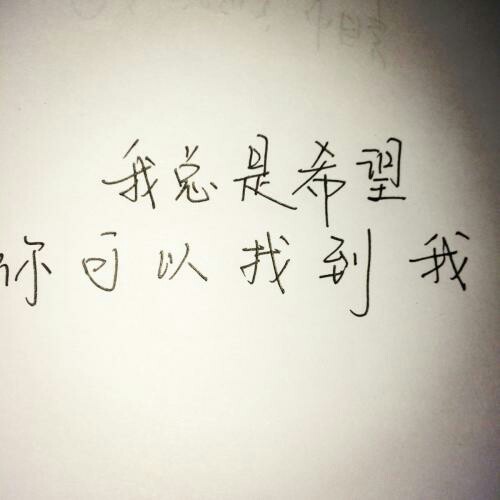 我总是希望
你可以找到我